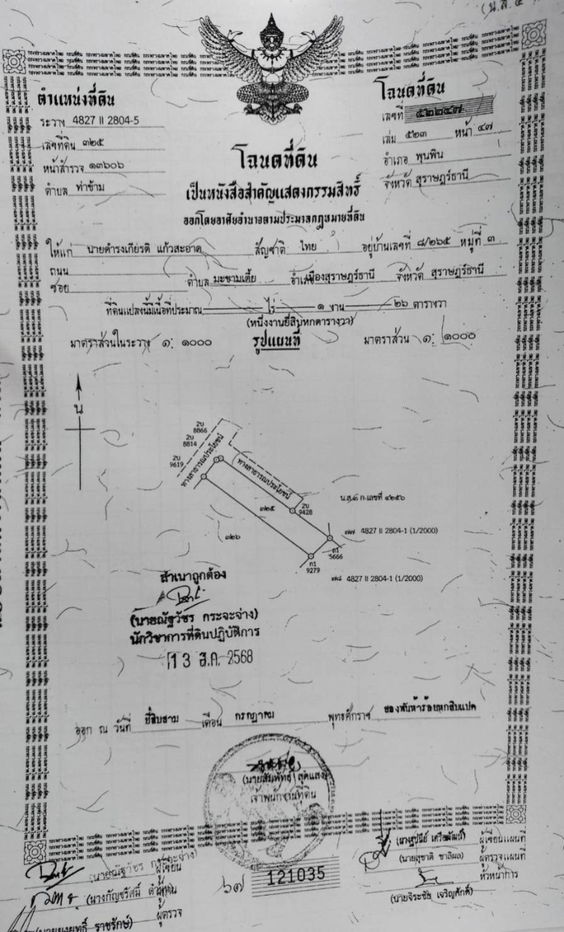 (น.ส. ๔
ตำแหน่งที่ดิน
ระวาง 4827 II 2804-5
เลขที่ดิน ๓๒๕
หน้าสำรวจ ๑๓๖๐๖
ตำบล ท่าข้าม
โฉนดที่ดิน
เลขที่ ๕๒๒๔๗
เล่ม ๕๒๓ หน้า ๔๗
อำเภอ พุนพิน
จังหวัด สุราษฎร์ธานี
โฉนดที่ดิน
เป็นหนังสือสำคัญแสดงกรรมสิทธิ์
ออกโดยอาศัยอำนาจตามประมวลกฎหมายที่ดิน
ให้แก่ นายดำรงเกียรติ แก้วสะอาด สัญชาติ ไทย อยู่บ้านเลขที่ ๘/๒๖๕ หมู่ที่ ๓
ถนน
ซอย ตำบล มะขามเตี้ย อำเภอเมืองสุราษฎร์ธานี จังหวัด สุราษฎร์ธานี
ที่ดินแปลงนี้มีเนื้อที่ประมาณ ไร่ ๑ งาน ๒๖ ตารางวา
(หนึ่งงานยี่สิบหกตารางวา)
มาตราส่วนในระวาง ๑: ๑๐๐๐ รูปแผนที่ มาตราส่วน ๑: ๑๐๐๐
น
2บ
8866
2บ
8814
2บ
9619
ทางสาธารณประโยชน์
ทางสาธารณประโยชน์
๓๒๕
2บ
9428
น.ส.๓ ก.เลขที่ ๔๒๕๖
๓๒๖
๗๗ 4827 II 2804-1 (1/2000)
ก1
5666
ก1
9279
๗๘ 4827 II 2804-1 (1/2000)
สำเนาถูกต้อง
(นายณัฐวัชร กระจะจ่าง)
นักวิชาการที่ดินปฏิบัติการ
13 ส.ค. 2568
ออก ณ วันที่ ยี่สิบสาม เดือน กรกฎาคม พุทธศักราช สองพันห้าร้อยหกสิบแปด
เจ้าพนักงานที่ดิน
(นายณัฐวัชร กระจะจ่าง) ผู้เขียน
ผู้ตรวจ
๖๗ 121035
ผู้เขียนแผนที่
(นายสุชาติ ชาลีผล) ผู้ตรวจแผนที่
หัวหน้าการ
(นายจิระชัย เจริญศักดิ์)